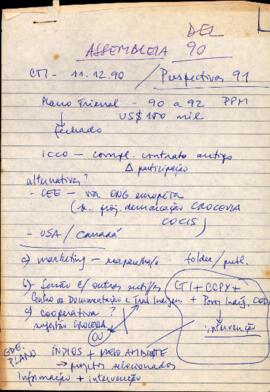 DEZ
ASSEMBLEIA 90
CTI - 11.12.90 / Perspectivas 91
Plano Trienal - 90 a 92 PPM
↓ US$ 100 mil
fechado
ICCO - compl. contrato antigo
Δ participação
alternativas?
- CEE - via ONG europeia
(p. proj. demarcação CROCEVIA
COCIS)
- USA / Canadá
a) marketing - folder / publ.
b) fusão c/ outras entids
CTI + CCPY +
Centro de Documentação e Trab. Indígena + Povos Indíg. CEDI
intervenção
c) cooperativa?
sugestão CROCEVIA
OU
GDE. PLANO
ÍNDIOS + MEIO AMBIENTE
→ projetos selecionados
Informação + intervenção